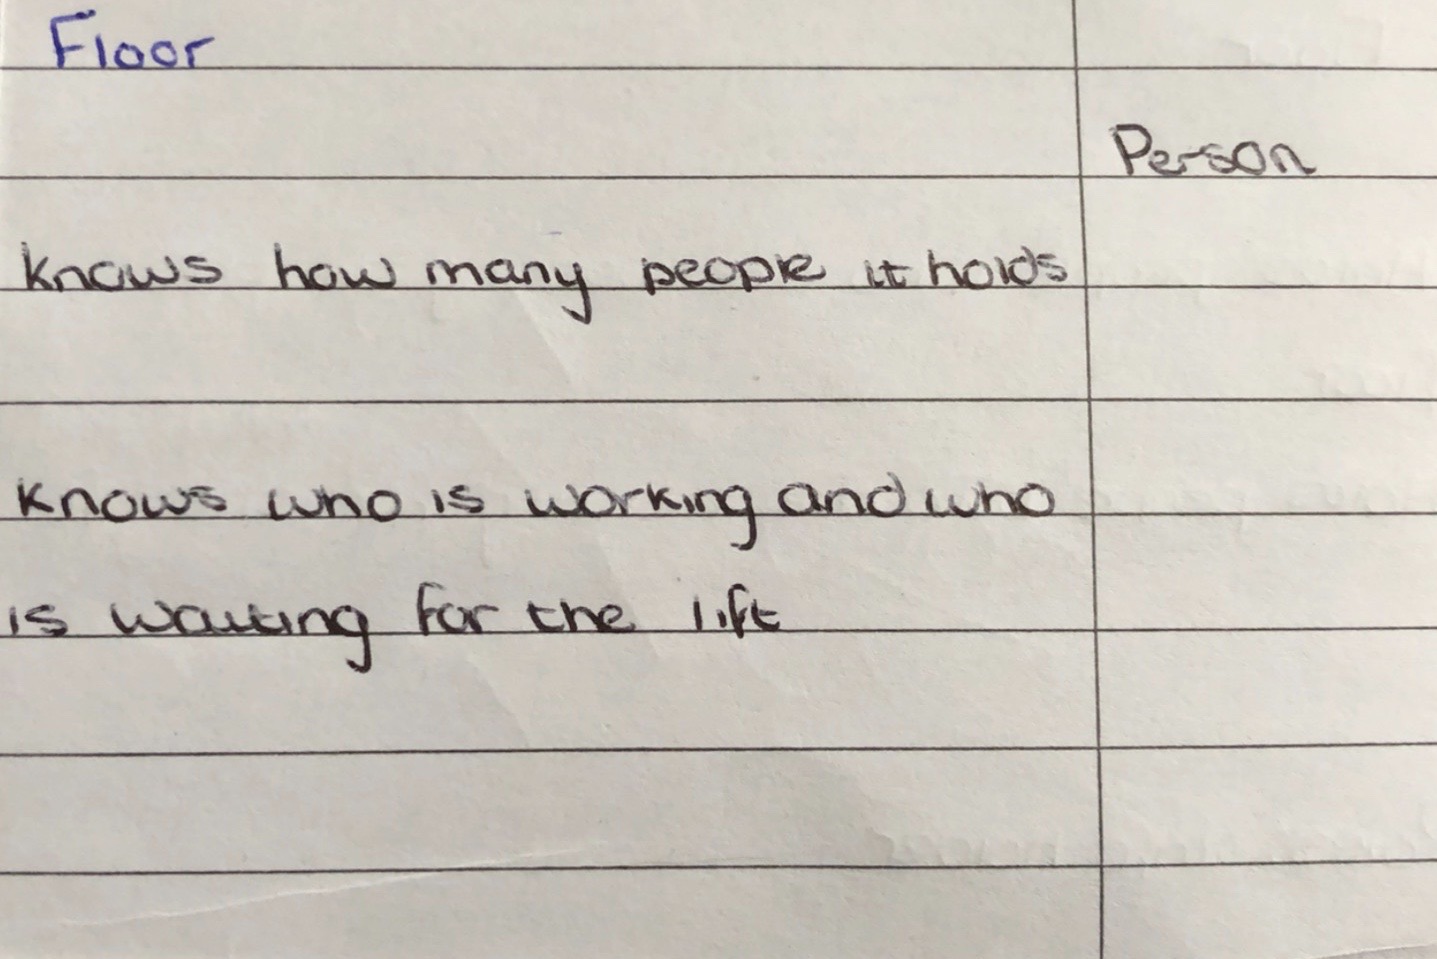 Floor
Person
knows how many people it holds
knows who is working and who
is waiting for the lift